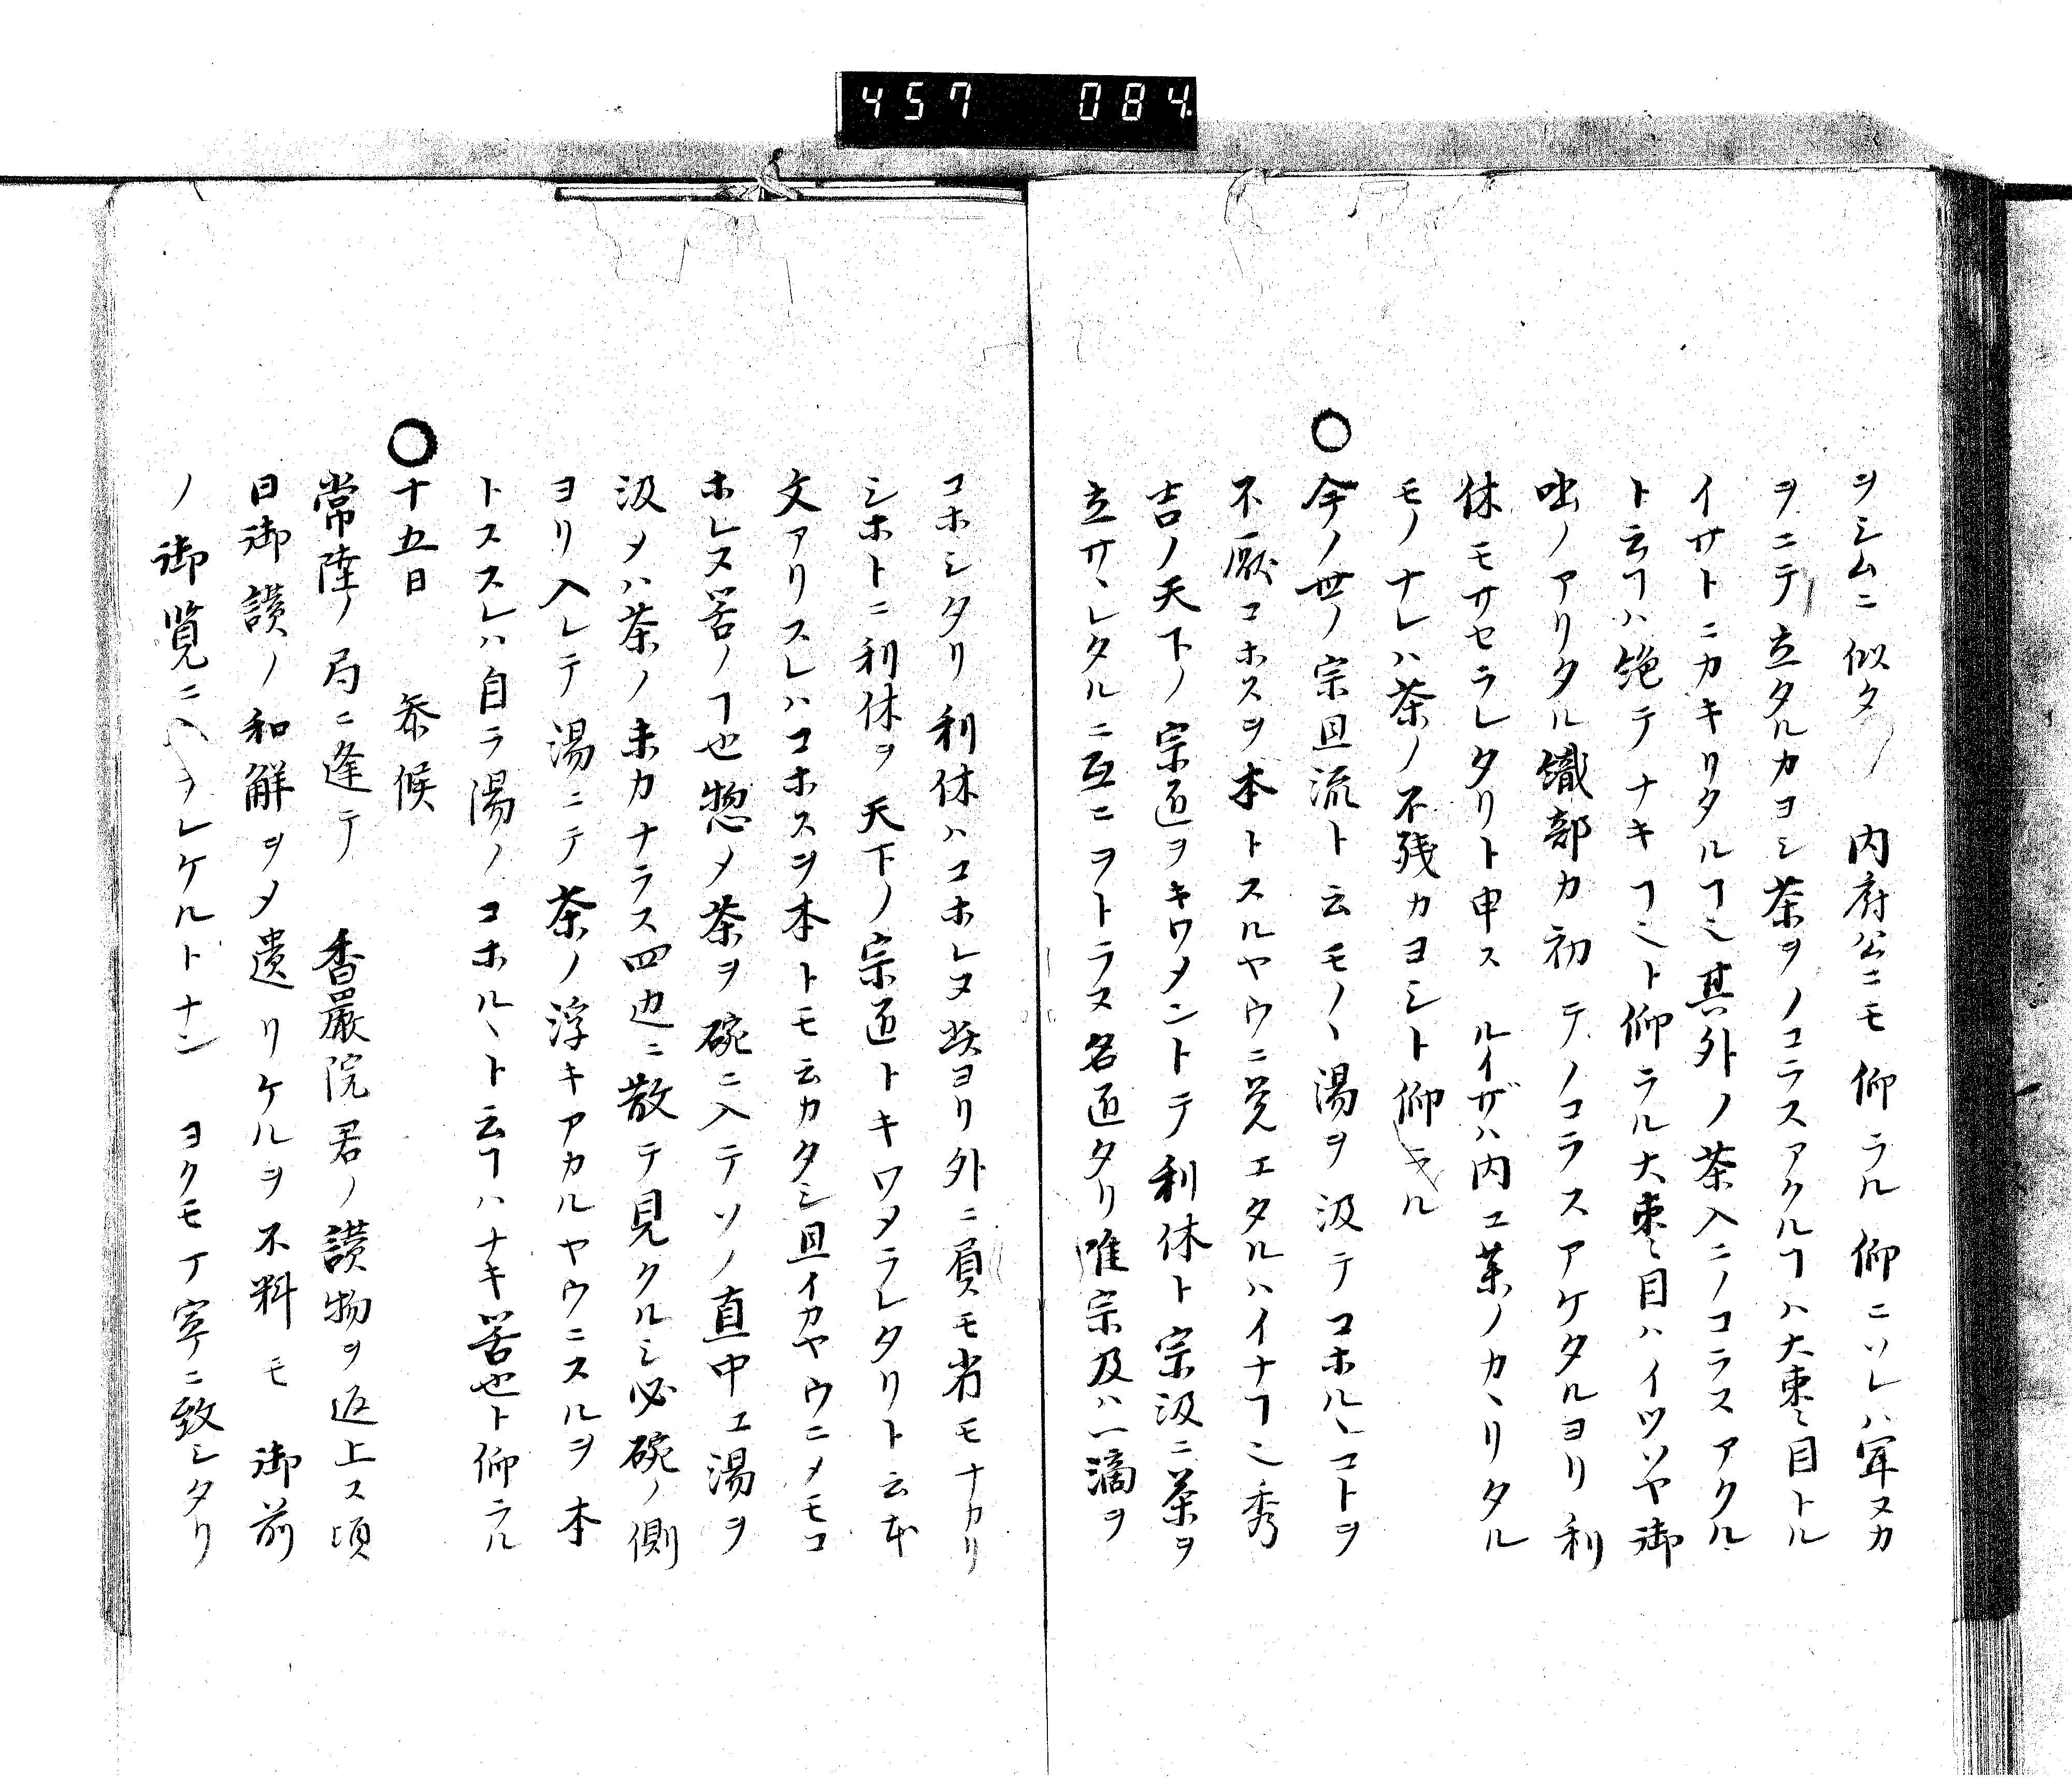 457 084
ヲシムニ似タリ 内府公ニモ仰ラル仰ニソレハ宜ヌカ
ヲニテ立タルカヨシ茶ヲノコラスアクルヿハ大棗ミ目トル
イサトニカキリタルヿ也其外ノ茶入ニノコラスアクル
ト云ヿハ絶テナキヿ也ト仰ラル大棗ミ目ハイツソヤ御
咄ノアリタル織部カ初テノコラスアケタルヨリ利
休モサセラレタリト申ス ルイザハ内エ茶ノカヽリタル
モノナレハ茶ノ不残カヨシト仰ラル
○今ノ世ノ宗旦流ト云モノヽ湯ヲ汲テコホルヽコトヲ
不厭コホスヲ本トスルヤウニ覚エタルハイナヿ也秀
吉ノ天下ノ宗匠ヲキワメントテ利休ト宗汲ニ茶ヲ
立サヽレタルニ互ニヲトラス名匠タリ唯宗及ハ一滴ヲ
コホシタリ利休ハコホレヌ炎ヨリ外ニ負モ省モナカリ
シホトニ利休ヲ天下ノ宗匠トキワメラレタリト云本
文アリスレハコホスヲ本トモ云カタシ且イカヤウニメモコ
ホレヌ筈ノヿ也惣メ茶ヲ碗ニ入テソノ直中エ湯ヲ
汲メハ茶ノ末カナラス四辺ニ散テ見クルシ必碗ノ側
ヨリ入レテ湯ニテ茶ノ浮キアカルヤウニスルヲ本
トススレハ自ラ湯ノコホルヽト云ヿハナキ筈也ト仰ラル
○十五日 参候
常陸ノ局ニ逢テ 香嚴院君ノ讃物ヲ返上ス頃
日御讃ノ和解ヲメ遺リケルヲ不料モ 御前
ノ御覧ニ入ラレケルトナン ヨクモ丁寧ニ致シタリ